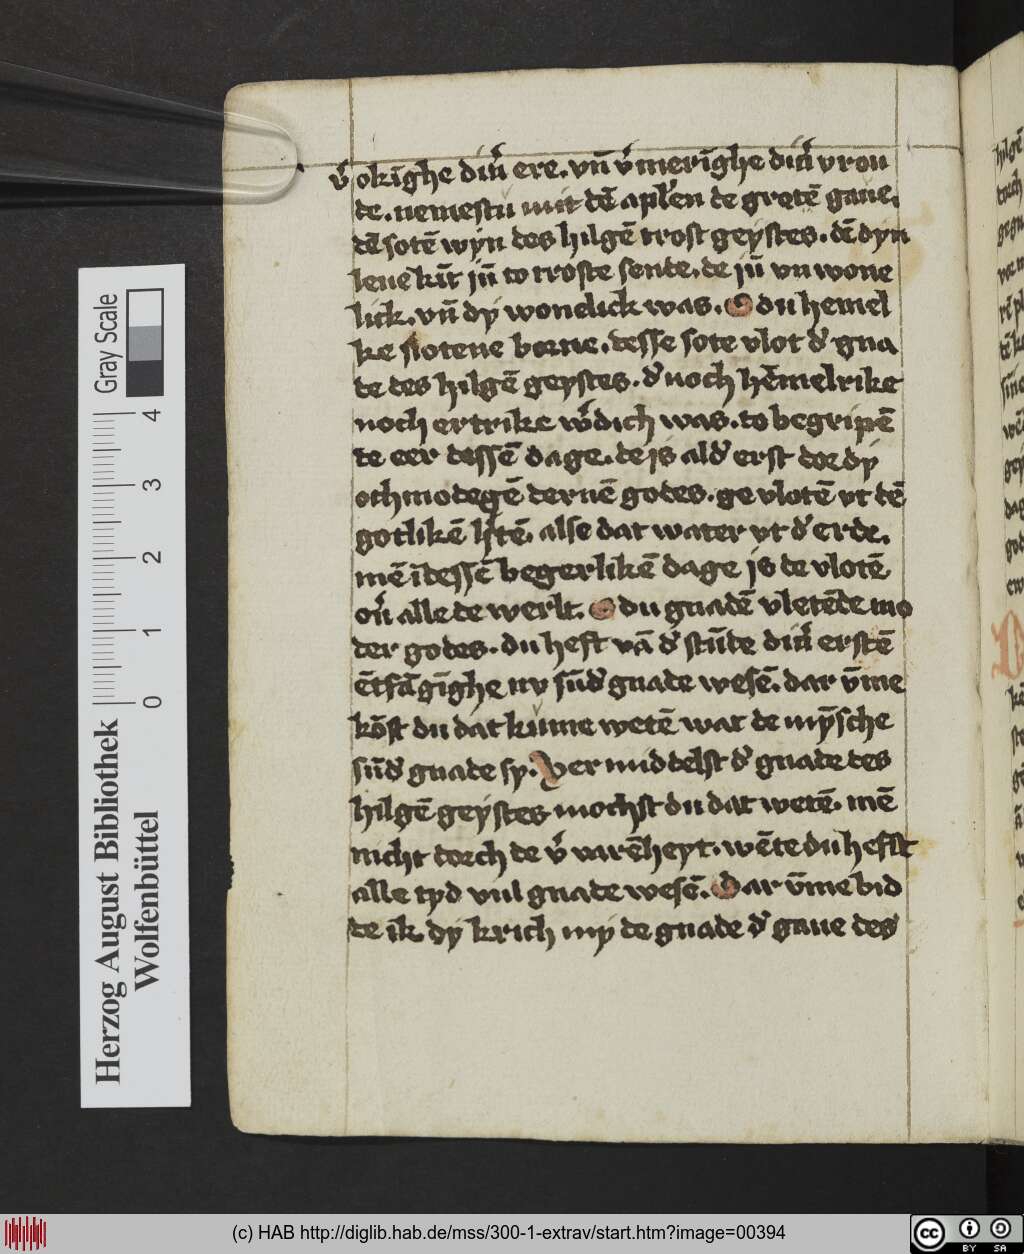 v̾okīghe din̄ ere. vn̄ v̾merīghe din̄ vrou
de. nemestu mit dē aplen̄ de grotē gaue.
dē sotē wyn des hilgē trost geystes. dē dyn
leue kīt jū to troste sende. de jū vn wone
lick. vn̄ dy wonelick was. O du hemel
ke slotene borne. desse sote vlot d̾ gna
de des hilgē geystes. d̾ noch hēmelrike
noch ertrike w̾dich was. to begripē
te eer dessē dage. de is ald̾ erst dor dy
othmodegē dernē godes. ge vlotē vt dē
gotlikē h̾tē. alse dat water vt d̾ erde.
mē ī dessē begerlikē dage js de vlotē
ou̾ alle de werlt. O du gnadē vletēde mo
der godes. du heft vā d̾ stūde din̄ erstē
ētfāgīghe ny sūd̾ gnade wesē. dar v̄me
kōst du dat kume wetē wat de mȳsche
sūd̾ gnade sy. Ver middelst d̾ gnade des
hilgē geystes mochst du dat wetē. mē
nicht dorch de v̾ varēheyt. wēte du hefst
alle tyd vul gnade wesē. Dar v̄me bid
de ik dy krich my de gnade d̾ gaue des
Herzog August Bibliothek
Wolfenbüttel
Gray Scale
0 1 2 3 4
(c) HAB http://diglib.hab.de/mss/300-1-extrav/start.htm?image=00394
cc BY SA